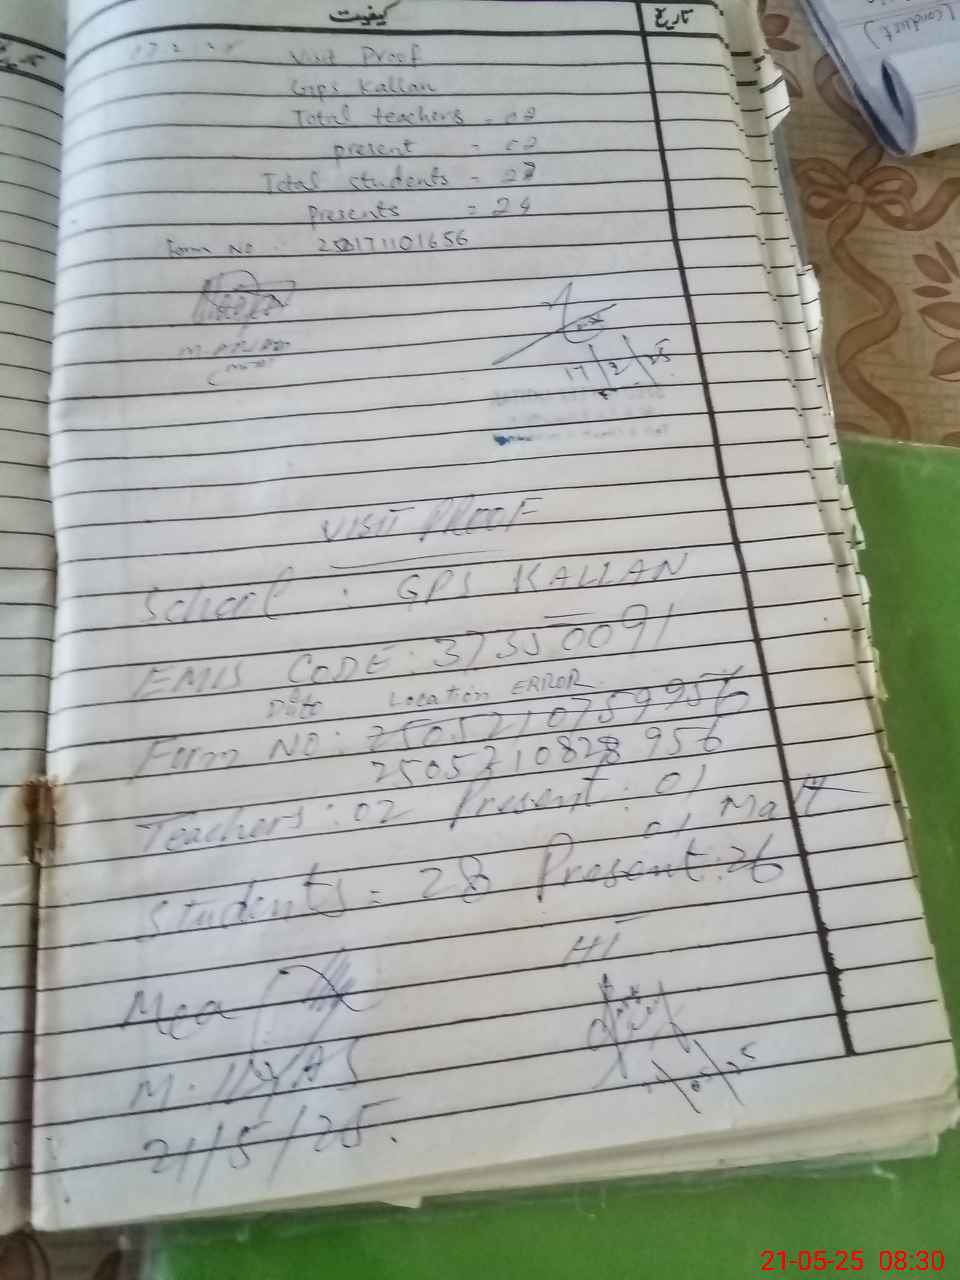 کیفیت تاریخ
Visit Proof
Gps Kallan
Total teachers = 02
present = 02
Total students = 28
Presents = 24
Form No :
17/2/25
VISIT PROOF
School : GPS KALLAN
EMIS CODE: 37350091
Date Location ERROR
Form NO: 2505210759956
2505210828956
Teachers: 02 Present: 01
01 Ma
Students = 28 Present: 26
Mea
HT
M. ILYAS
21/5/25.
(Conduct)
21-05-25 08:30